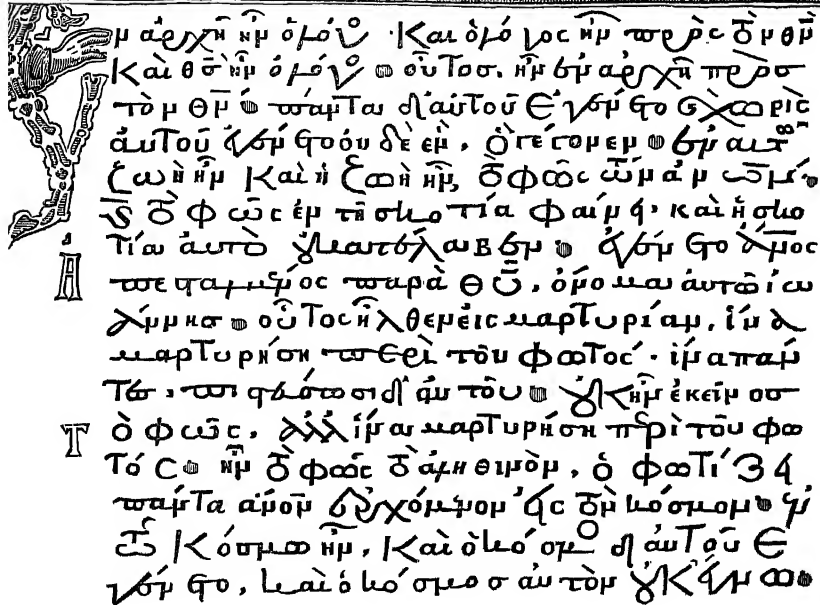 Ἐν ἀρχῆ ἦν ὁ λόγος· Καὶ ὁ λόγος ἦν πρὸς τὸν θν̅
Καὶ θς̅ ἦν ὁ λόγος· οὗτος. ἦν ἐν ἀρχῆ πρὸς
τὸν θν̅· πάντα δι' αὐτοῦ ἐγένετο καὶ χωρὶς
αὐτοῦ ἐγένετο οὐδὲ ἕν. ὃ γέγονεν· ἐν αὐτῶ
ζωὴ ἦν Καὶ ἡ ζωὴ ἦν, τὸ φῶς τῶν ἀνω̅ν·
καὶ τὸ φῶς ἐν τῆ σκοτία φαίνει· καὶ ἡ σκο
τία αὐτὸ οὐ κατέλαβεν· ἐγένετο ἄνος
Ἀπεσταλμένος παρὰ θυ̅, ὄνομα αὐτῶ ἰω
άννης· οὗτος ἦλθεν εἰς μαρτυρίαν, ἵνα
μαρτυρήση περὶ τοῦ φωτός· ἵνα πάν
τες, πιστεύσωσι δι' αὐτοῦ· οὐκ ἦν ἐκεῖνος
Τὸ φῶς, ἀλλ' ἵνα μαρτυρήση περὶ τοῦ φω
τός· ἦν τὸ φῶς τὸ ἀληθινὸν, ὃ φωτίζει
πάντα ἄνον ἐρχόμενον εἰς τὸν κόσμον· ἐν
τῶ Κόσμω ἦν, Καὶ ὁ κόσμος δι' αὐτοῦ ἐ
γένετο, καὶ ὁ κόσμος αὐτὸν οὐκ ἔγνω·